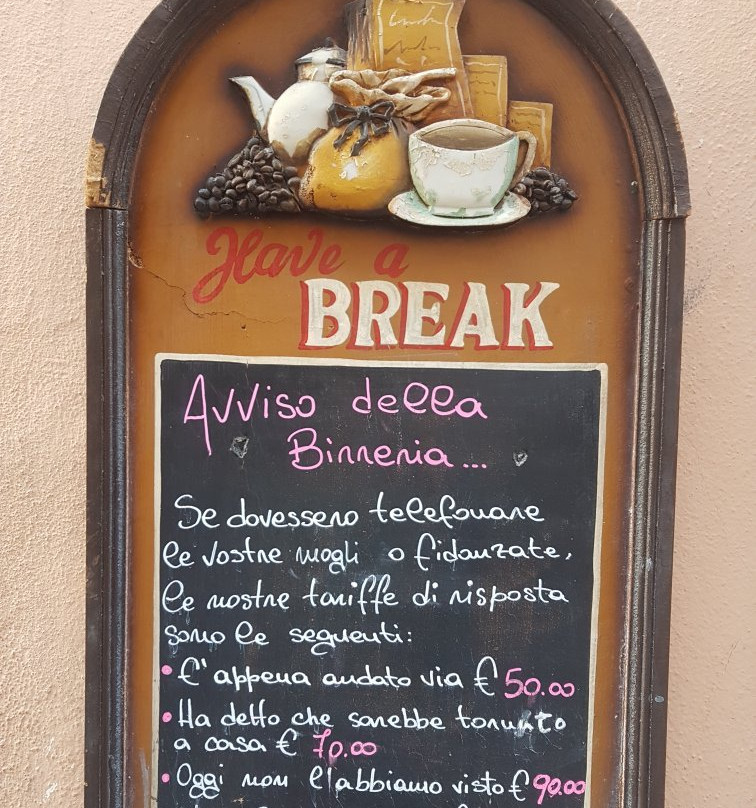 Have a
BREAK
Avviso della
Birreria...
Se dovessero telefonare
le vostre mogli o fidanzate,
le nostre tariffe di risposta
sono le seguenti:
• E' appena andato via € 50.00
• Ha detto che sarebbe tornato
a casa € 70.00
• Oggi non l'abbiamo visto € 90.00